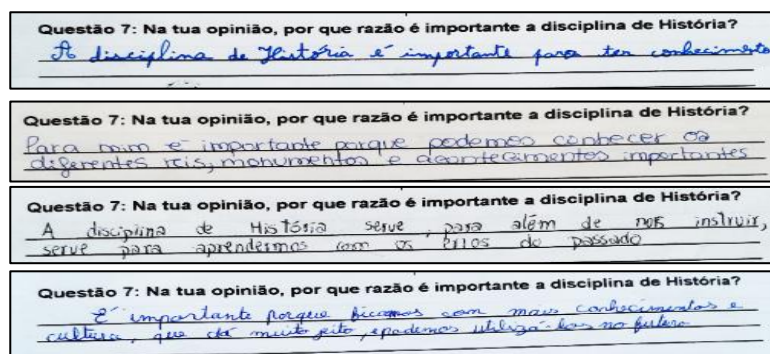 Questão 7: Na tua opinião, por que razão é importante a disciplina de História?
A disciplina de História é importante para ter conhecimento
Questão 7: Na tua opinião, por que razão é importante a disciplina de História?
Para mim é importante porque podemos conhecer os
diferentes reis, monumentos e acontecimentos importantes
Questão 7: Na tua opinião, por que razão é importante a disciplina de História?
A disciplina de História serve, para além de nos instruir,
serve para aprendermos com os erros do passado
Questão 7: Na tua opinião, por que razão é importante a disciplina de História?
É importante porque ficamos com mais conhecimentos e
cultura, que dá muito jeito, e podemos utilizá-los no futuro